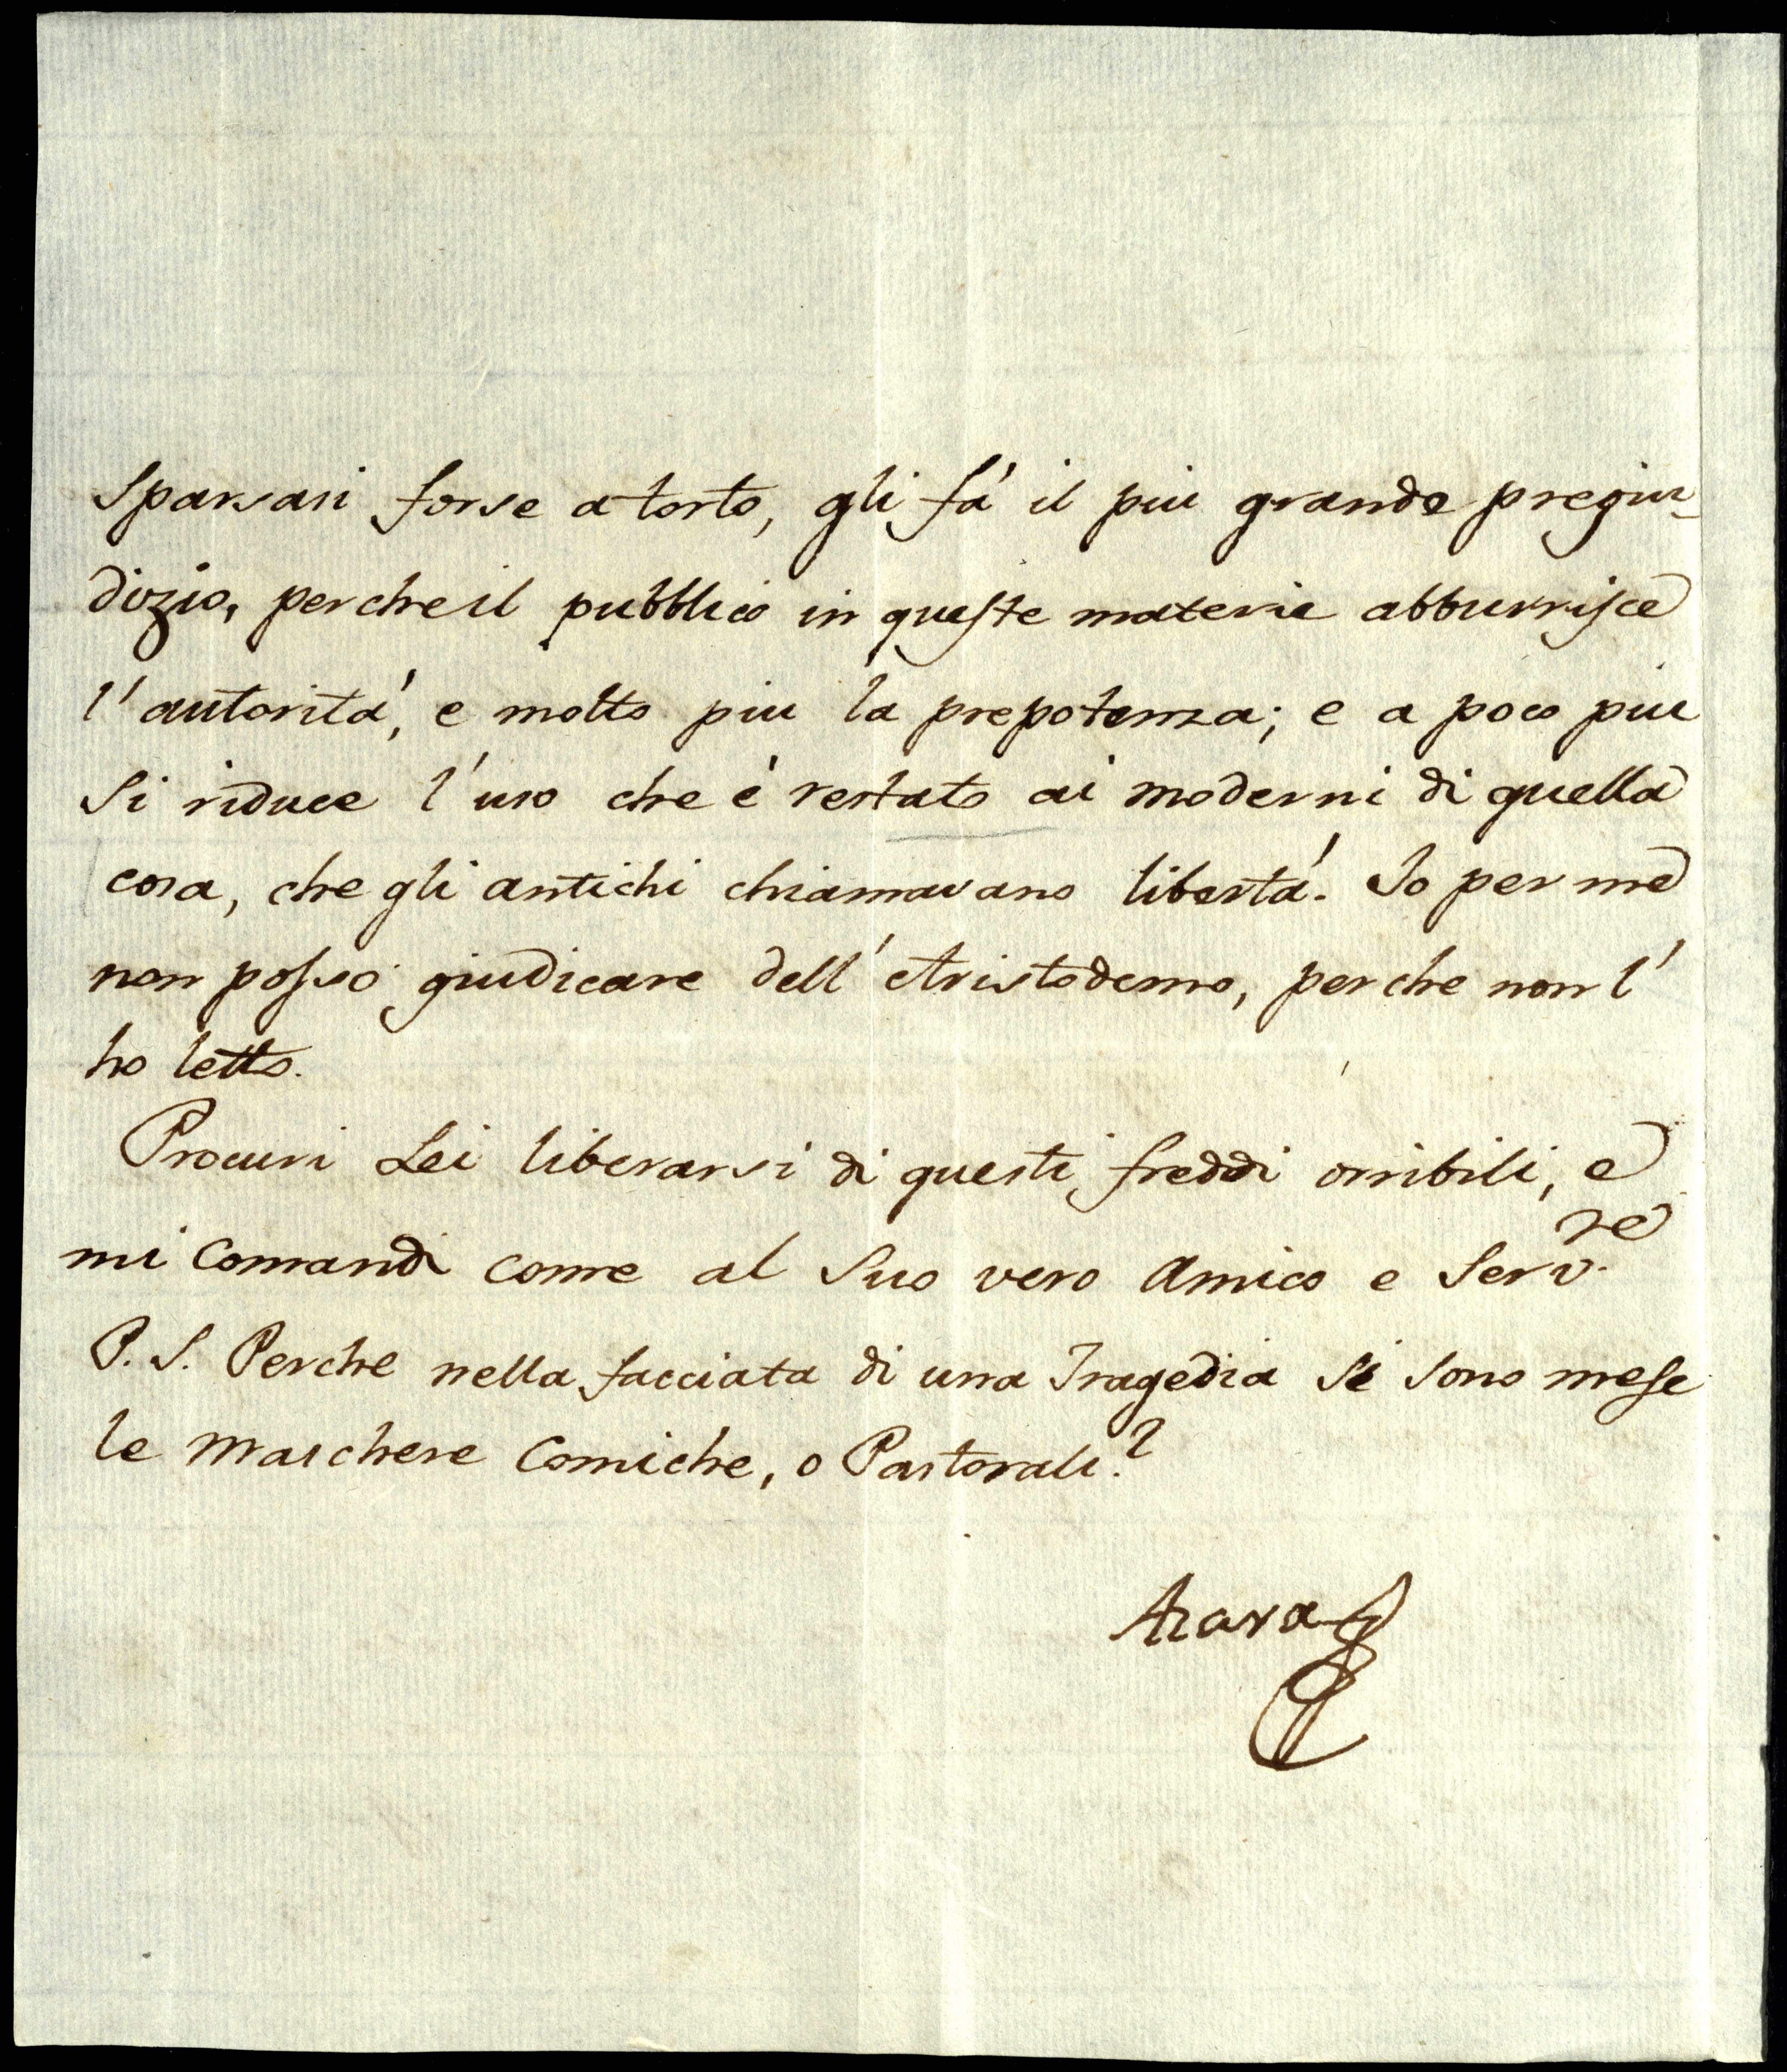 sparsasi forse a torto, gli fá il piu grande pregiu-
dizio, perche il pubblico in queste materie abburrisce
l'autoritá, e molto piu la prepotenza; e a poco piu
si riduce l'uso che é restato ai moderni di quella
cosa, che gli antichi chiamavano libertá. Io per me
non posso giudicare dell'Aristodemo, perche non l'
ho letto.
Procuri Lei liberarsi di questi freddi orribili, e
mi Comandi come al Suo vero Amico e Serv.re
P.S. Perche nella facciata di una Tragedia si sono messe
le Maschere Comiche, o Pastorali?
Azara